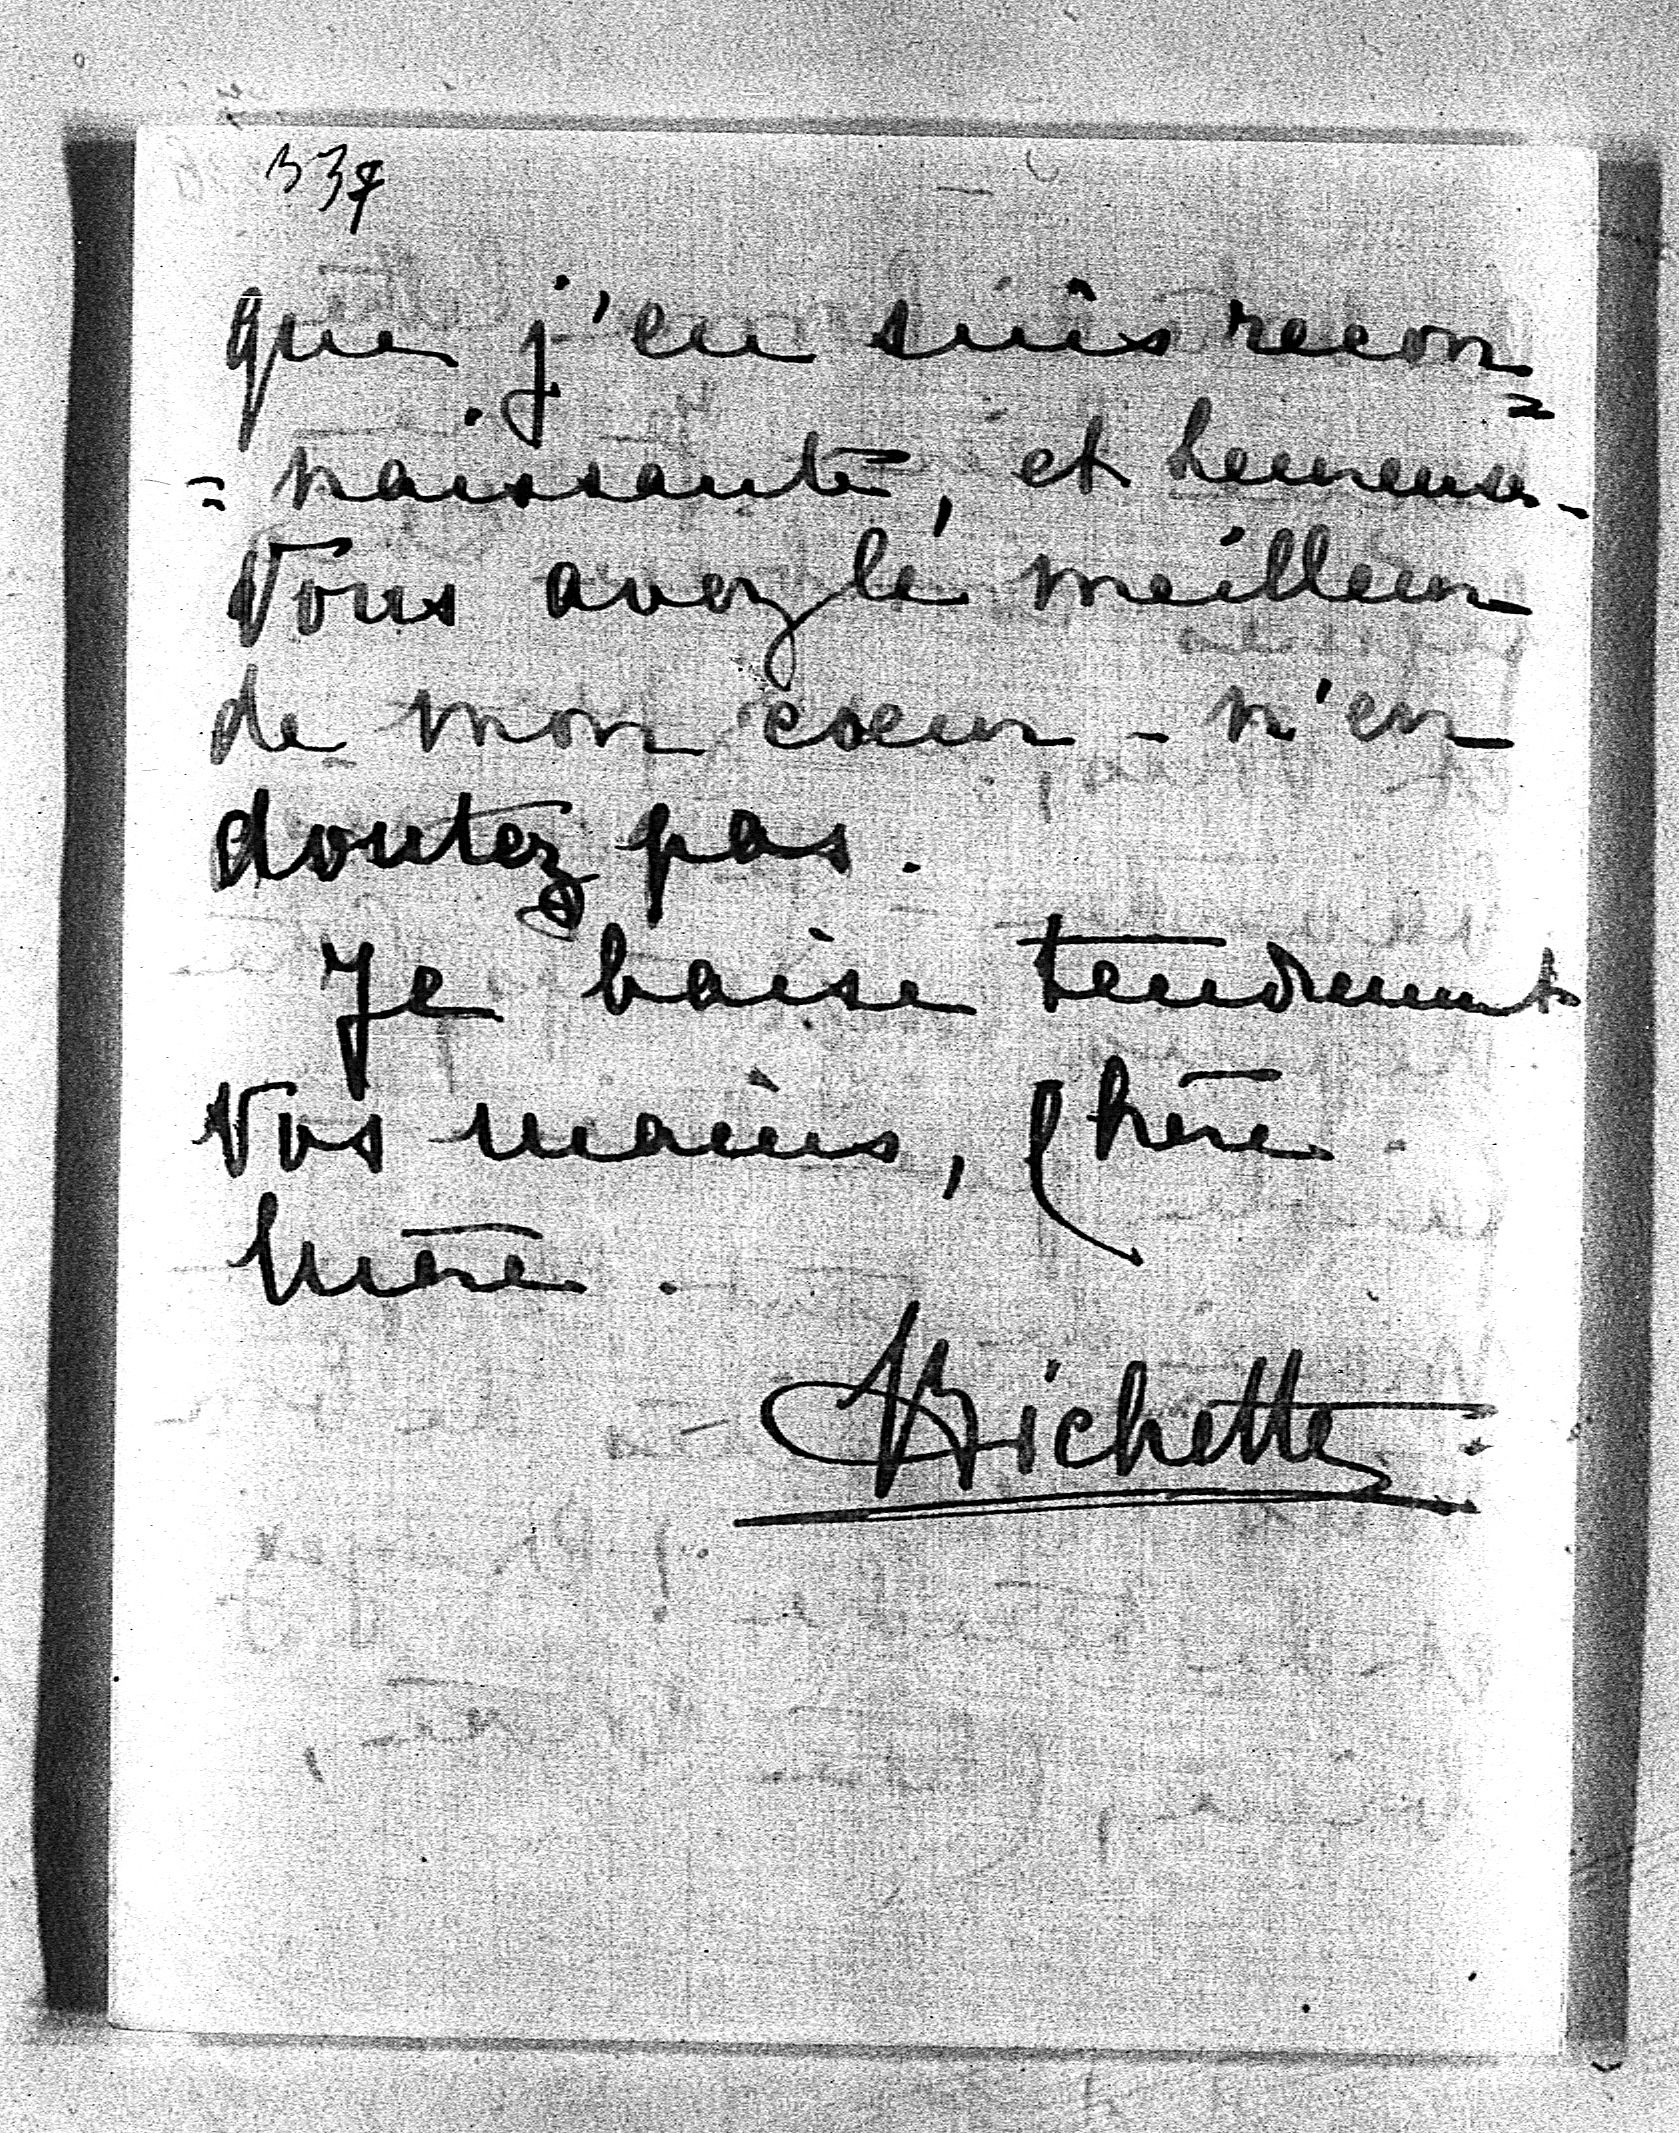 337
que j'en suis recon=
=naissante, et heureuse -
Vous avez le meilleur
de mon coeur - n'en
doutez pas.
Je baise tendrement
Vos mains, Chère
Mère.